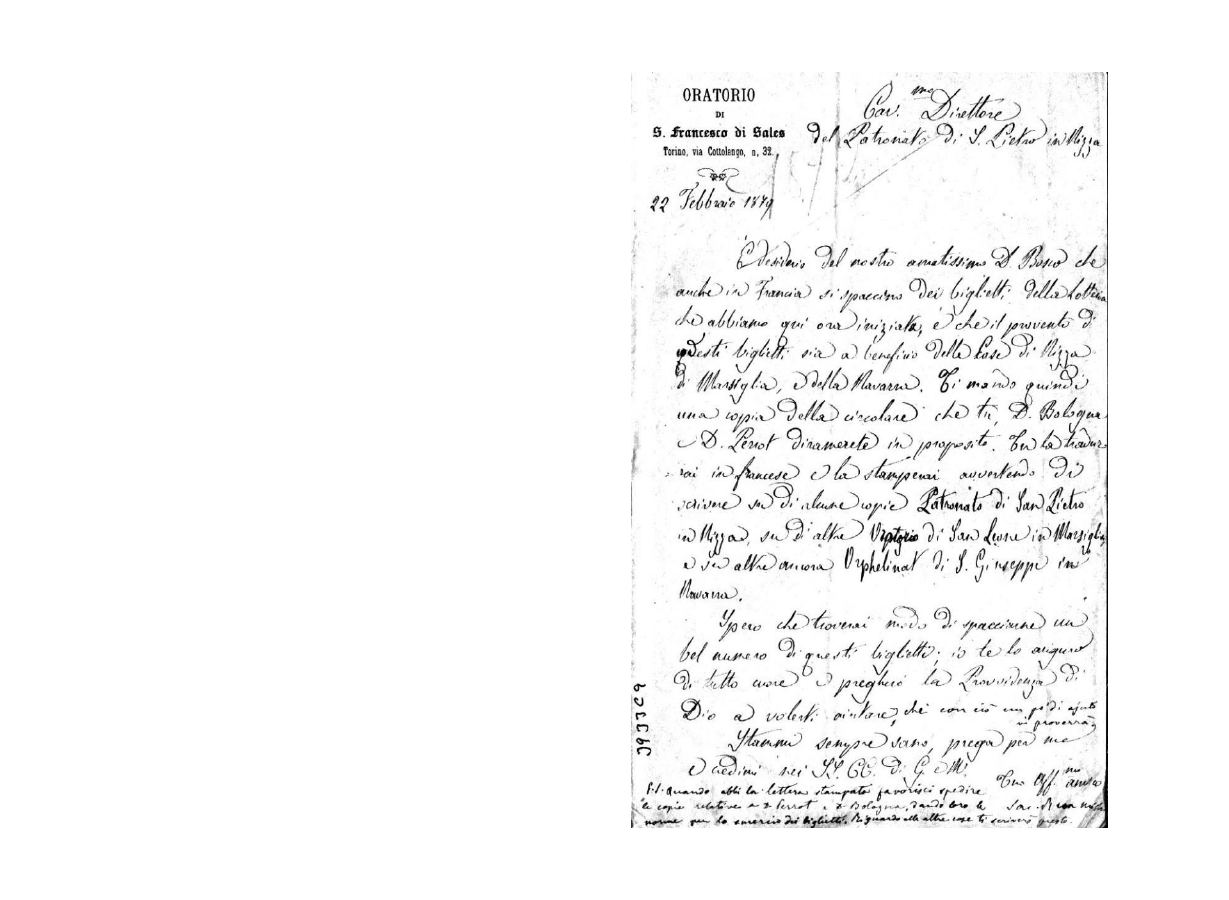 ORATORIO
DI
S. Francesco di Sales
Torino, via Cottolengo, n, 32.
Car.mo Direttore
del Patronato di S. Pietro in Nizza
22 Febbraio 1879
È desiderio del nostro amatissimo D. Bosco che
anche in Francia si spaccino dei biglietti della Lotteria
che abbiamo qui ora iniziata, e che il provento di
questi biglietti sia a beneficio delle Case di Nizza
di Marsiglia, e della Navarra. Ti mando quindi
una copia della circolare che tu, D. Bologna
e D. Perrot diramerete in proposito. Tu la tradur-
rai in francese e la stamperai avvertendo di
scrivere su di alcune copie Patronato di San Pietro
in Nizza, su di altre di San Leone in Marsiglia
e su altre ancora Orphelinat di S. Giuseppe in
Navarra.
Spero che troverai modo di spacciarne un
bel numero di questi biglietti; io te lo auguro
di tutto cuore e pregherò la Provvidenza di
Dio a volerti aiutare, chè con ciò un po' di ajuto
vi proverrà
Stammi sempre sano, prega per me
e credimi nei SS. CC. di G. e M.
Tuo Aff.mo amico
P.S. Quando abbi la lettera stampata favorisci spedire
le copie relative a D. Perrot e D. Bologna, dando loro le
norme per lo smercio dei biglietti. Riguardo alle altre cose ti scriverò presto.